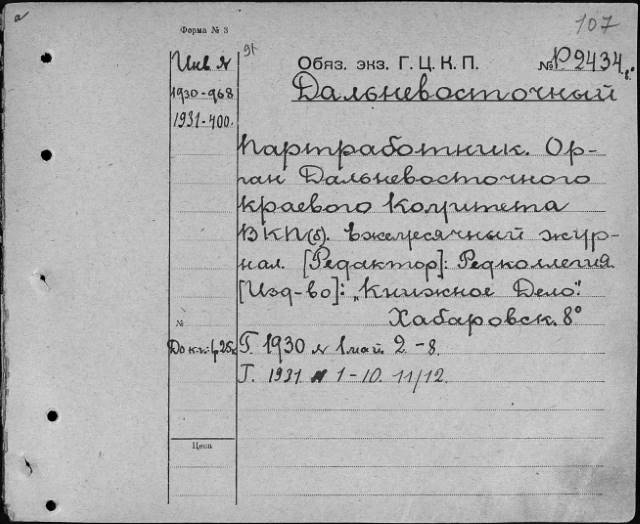 а
Форма № 3
107
91
Инв. №
Обяз. экз. Г. Ц. К. П. № Р2434
1930-968
Дальневосточный
1931-400.
партработник. Ор-
ган Дальневосточного
краевого Комитета
ВКП(б). Ежемесячный жур-
нал. [Редактор]: Редколлегия.
[Изд-во]: „Книжное Дело".
Хабаровск. 8°
№
Г. 1930 № 1 май 2-8.
Г. 1931 № 1-10. 11/12.
Цена